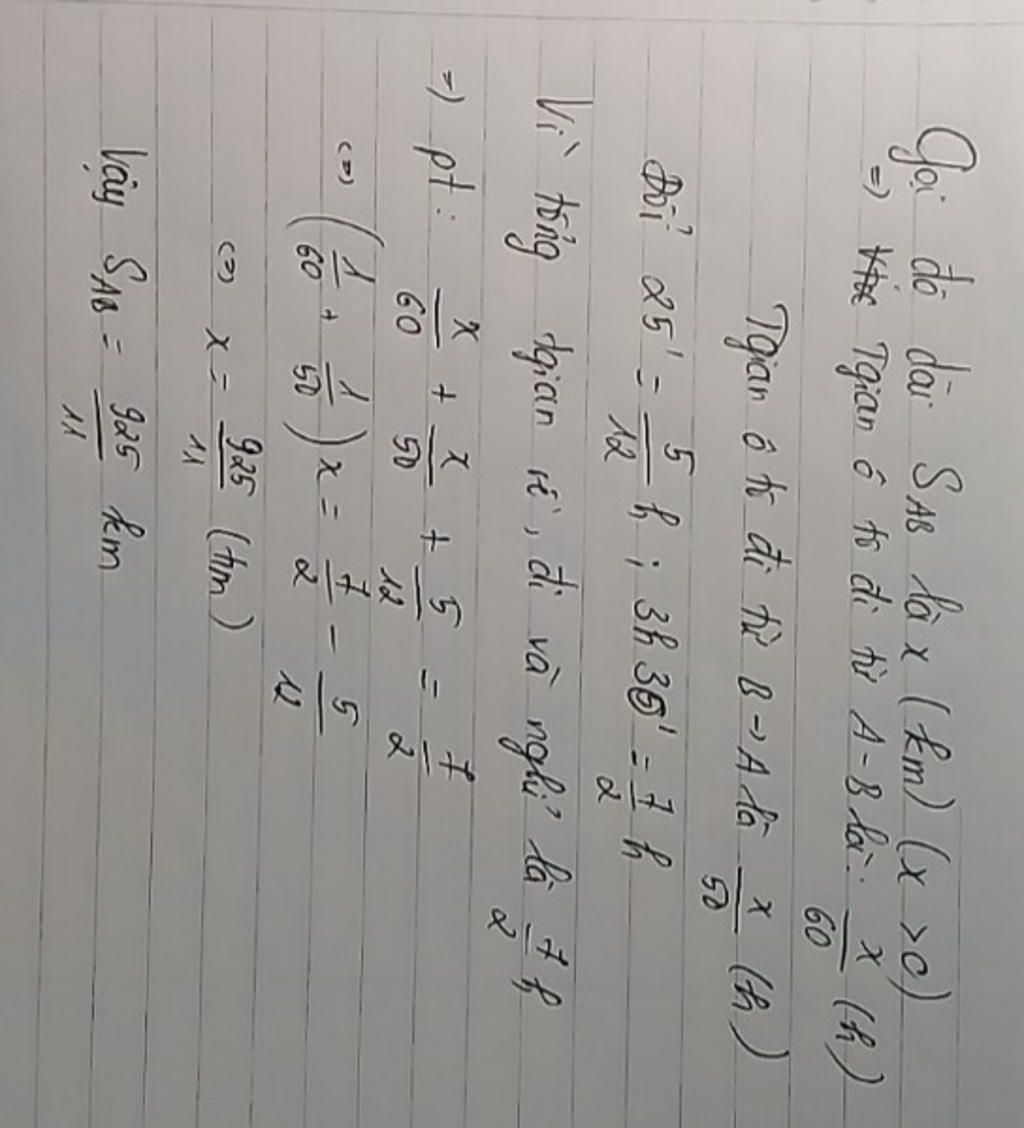 Gọi độ dài S_AB là x (km) (x > 0)
=> Tgian ô tô đi từ A - B là: x/60 (h)
Tgian ô tô đi từ B → A là x/50 (h)
Đổi 25' = 5/12 h ; 3h30' = 7/2 h
Vì tổng tgian về, đi và nghỉ là 7/2 h
=> pt: x/60 + x/50 + 5/12 = 7/2
<=> (1/60 + 1/50) x = 7/2 - 5/12
<=> x = 925/11 (km)
Vậy S_AB = 925/11 km